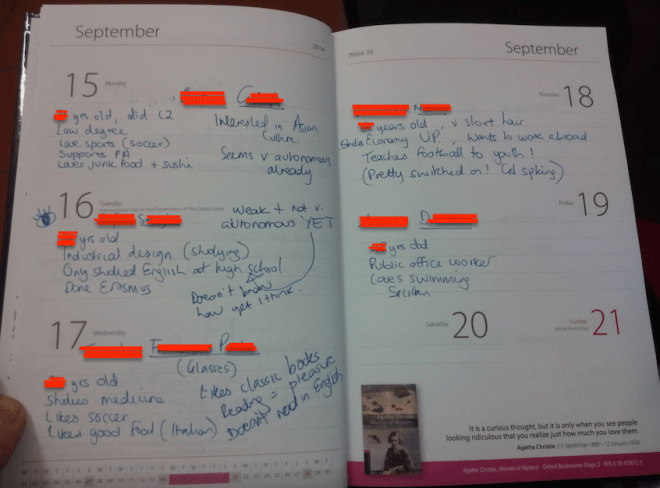 September
2014
15 Monday
C
yrs old, did L2
Law degree
Love sports (soccer)
Supports PA
Loves junk food + sushi
Interested in Asian
culture.
Seems v autonomous
already
16 Tuesday
S
weak + not v.
autonomous YET
yrs old
Industrial design (studying)
Only studied English at high school
Done Erasmus
Doesn't know
how yet I think.
17 Wednesday
F P
(Glasses)
yrs old
Studies medicine
Likes soccer
Likes good food (Italian)
Likes classic books
Reading = pleasure
Doesn't read in English
M T W T F S S M T W T F S S M T W T F S S M T W T F S S M T
September
Thursday 18
M
years old, v short hair
Studies Economy UP, wants to work abroad
Teaches football to youth!
(Pretty switched on! Gd spking)
Friday 19
D
yrs old
Public office worker
Loves swimming
Sicilian
Saturday 20
Sunday 21
World Peace Day
Woman of Mystery
It is a curious thought, but it is only when you see people
looking ridiculous that you realize just how much you love them.
Agatha Christie (15 September 1890 – 12 January 1976)
Agatha Christie, Woman of Mystery · Oxford Bookworms Stage 2